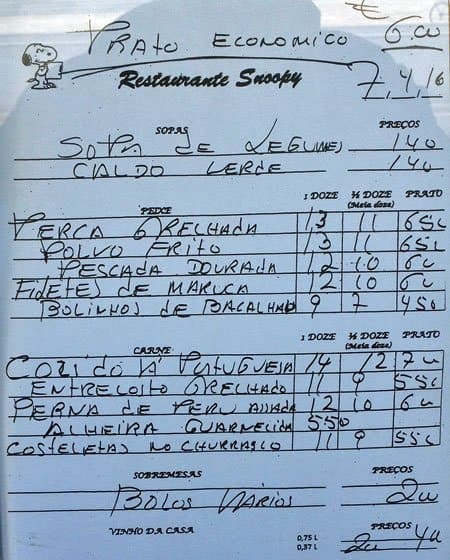 PRATO ECONOMICO € 6.00
Restaurante Snoopy 7,4,16
SOPAS PREÇOS
SOPA de LEGUMES 140
CALDO VERDE 140
PEIXE 1 DOZE ½ DOZE (Meia doze) PRATO
PERCA GRELHADA 13 11 650
POLVO FRITO 13 11 650
PESCADA DOURADA 12 10 600
FILETES DE MARUCA 12 10 600
BOLINHOS de BACALHAU 9 7 450
CARNE 1 DOZE ½ DOZE (Meia doze) PRATO
COZIDO Á PORTUGUESA 14 12 700
ENTRECOSTO GRELHADO 11 9 550
PERNA de PERU ASSADA 12 10 600
ALHEIRA GUARNECIDA 550
COSTELETAS NO CHURRASCO 11 9 550
SOBREMESAS PREÇOS
BOLOS VÁRIOS 200
VINHO DA CASA 0,75 L PREÇOS
0,37 L 200 400